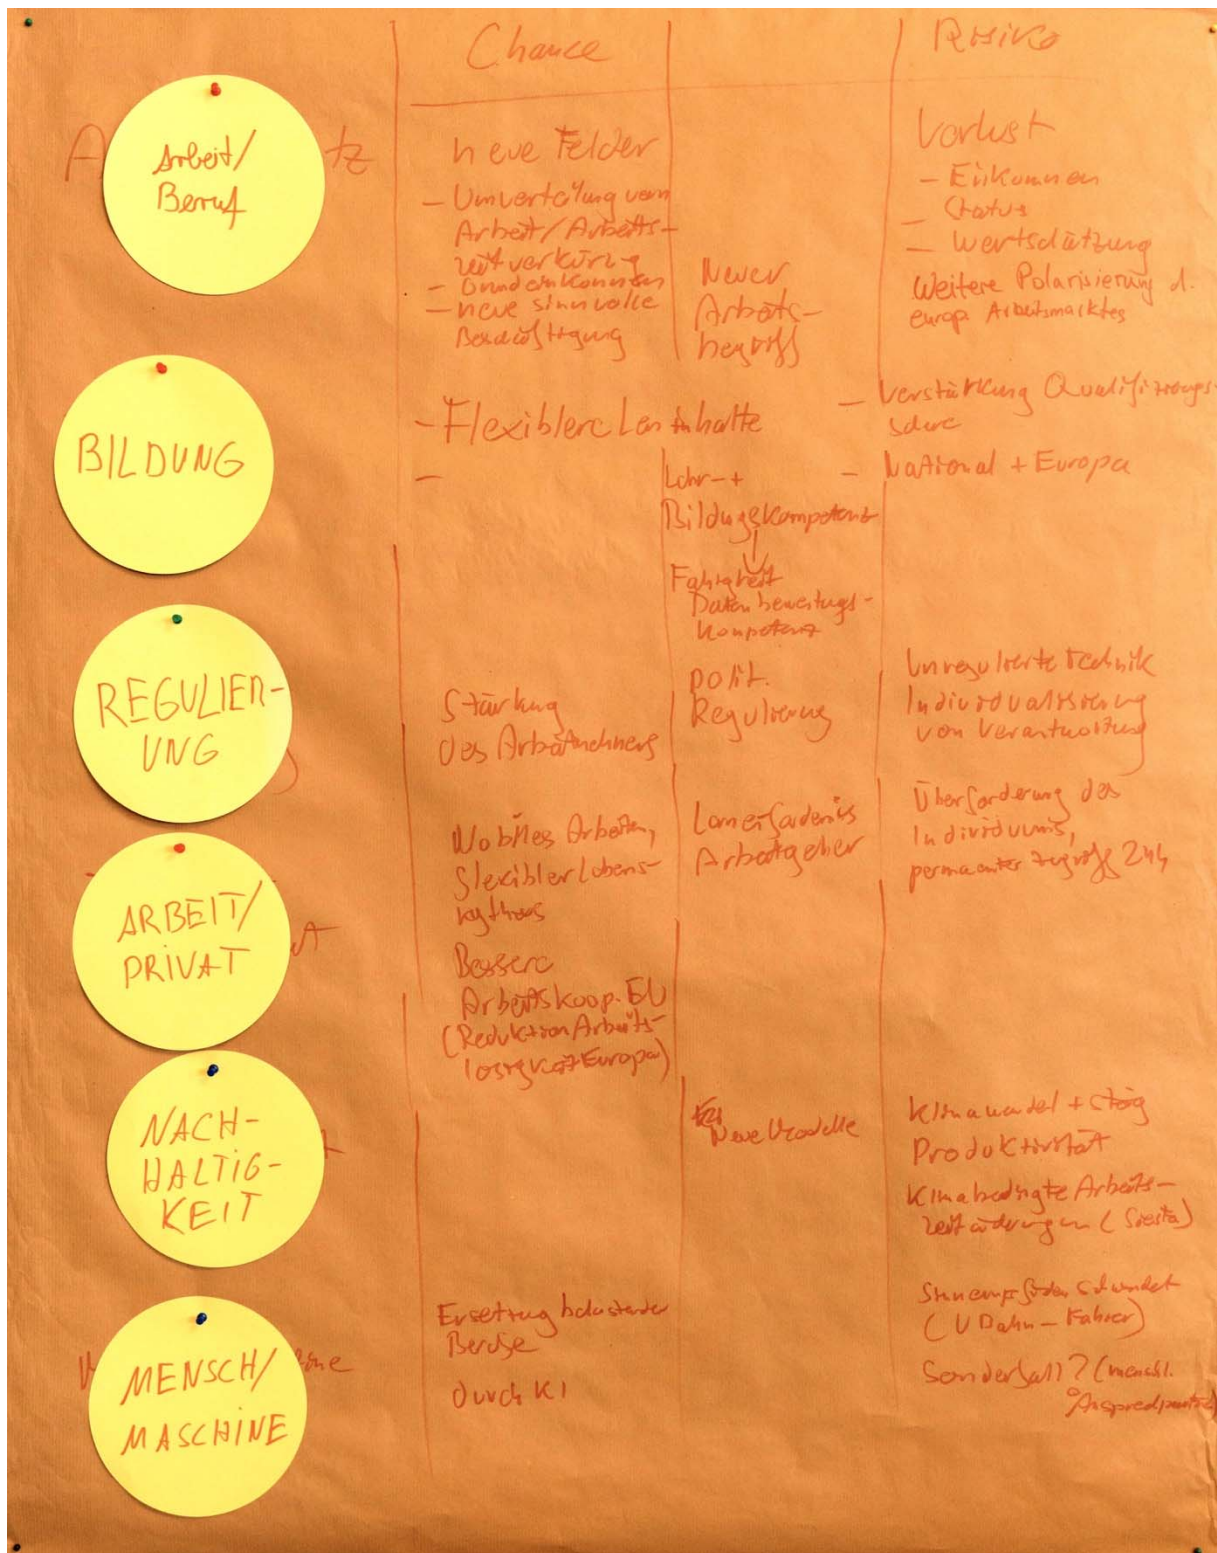 Chance
Risiko
Arbeit/
Beruf
neue Felder
- Umverteilung von
Arbeit/Arbeits-
zeitverkürzg
- Grundeinkommen
- neue sinnvolle
Beschäftigung
Neuer
Arbeits-
begriff
Verlust
- Einkommen
- Status
- Wertschätzung
Weitere Polarisierung d.
europ. Arbeitsmarktes
BILDUNG
- Flexiblere Lerninhalte
-
Lehr- +
Bildungskompetenz
Fähigkeit
Datenbewertungs-
kompetenz
- Verstärkung Qualifizierungs-
schere
- National + Europa
REGULIER-
UNG
Stärkung
des Arbeitnehmers
polit.
Regulierung
Unregulierte Technik
Individualisierung
von Verantwortung
ARBEIT/
PRIVAT
Mobiles Arbeiten,
flexibler Lebens-
rythmus
Bessere
Arbeitskoop. EU
(Reduktion Arbeits-
losigkeit Europa)
Arbeitgeber
Überforderung des
Individuums,
permanenter Zugriff 24h
NACH-
HALTIG-
KEIT
Neue Modelle
Klimawandel +
Produktivität
Klimabedingte Arbeits-
zeitänderungen (Siesta)
MENSCH/
MASCHINE
Ersetzung belastender
Berufe
durch KI
Sinnempfinden schwindet
(U Bahn - Fahrer)
Sonderfall? (menschl.
Ansprechpartner)